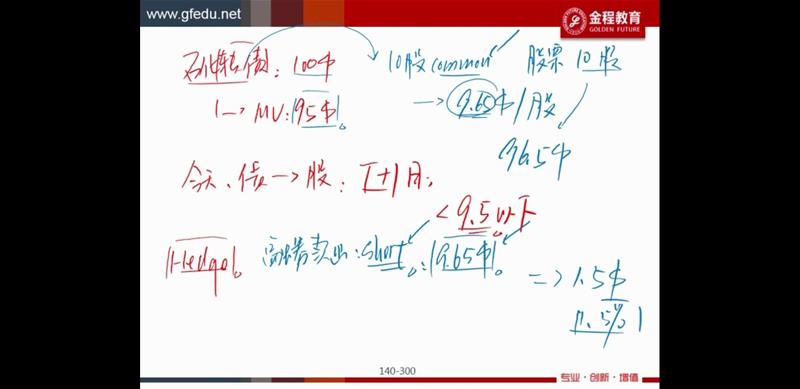 www.gfedu.net
金程教育
GOLDEN FUTURE
可转债: 100$ 10股common 股票10股
→ MV: 95$。 → 9.65$/股
96.5$
今天、债→股: T+1日,
< 9.5以下
Hedge。 融券卖出: short。: 9.65$。
=> 1.5$
1.5%
140-300
专业·创新·增值